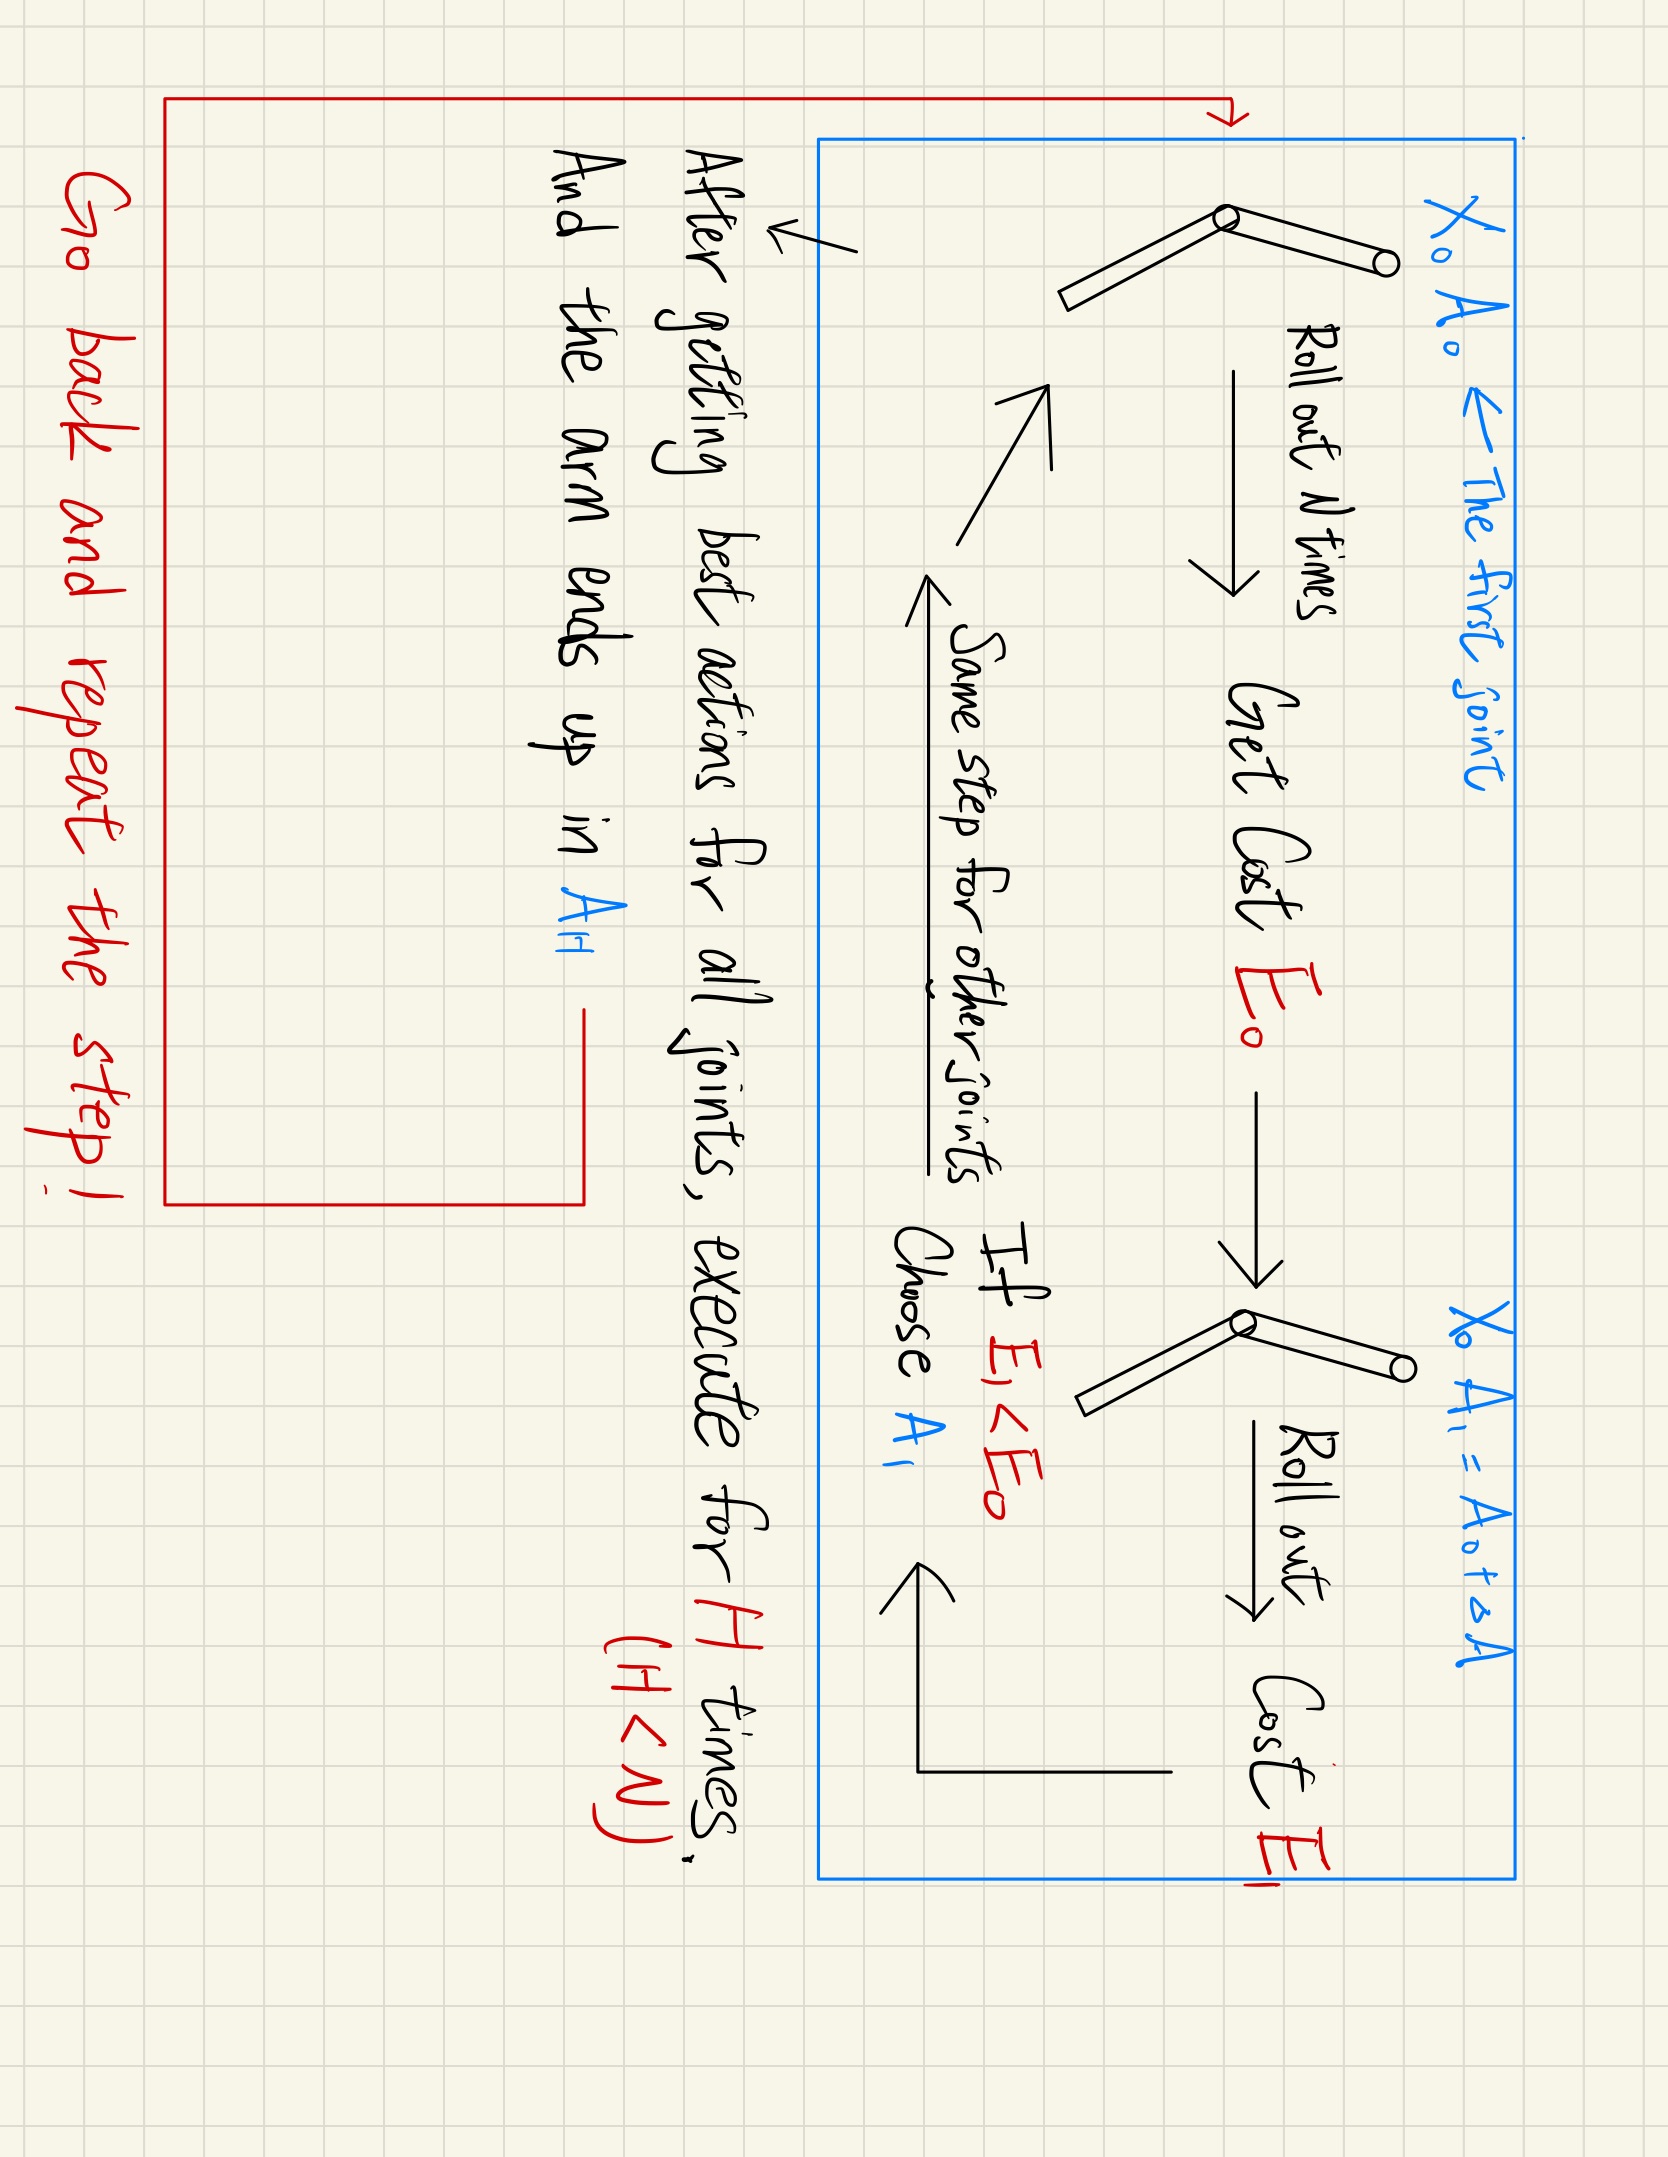 X₀ A₀ ← The first joint
X₀ A₁ = A₀ + △A
Roll out N times
Get Cost E₀
Roll out
Cost E₁
If E₁ < E₀
Choose A₁
Same step for other joints
After getting best actions for all joints, execute for H times.
(H < N)
And the arm ends up in A_H
Go back and repeat the step!